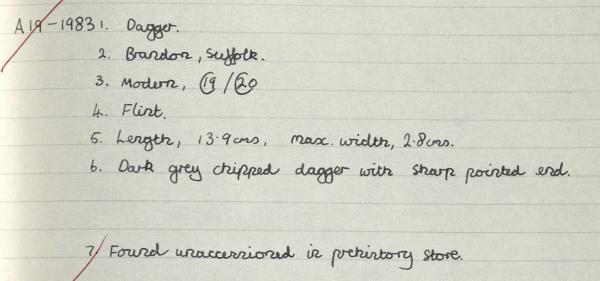 A19-1983 1. Dagger.
2. Brandon, Suffolk.
3. Modern, 19/20
4. Flint.
5. Length, 13.9cms, max. width, 2.8cms.
6. Dark grey chipped dagger with sharp pointed end.
7. Found unaccessioned in prehistory store.